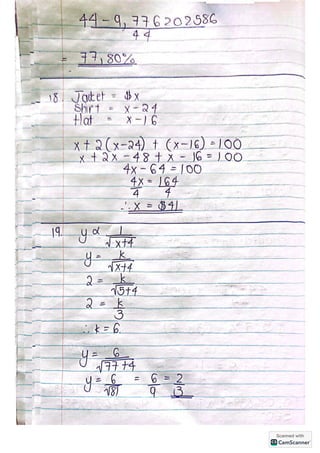 44 - 9,776202586
44
= 77,80%
18. Jacket = $x
Shirt = x-24
Hat = x-16
x + 2(x-24) + (x-16) = 100
x + 2x - 48 + x - 16 = 100
4x - 64 = 100
4x = 164
4 4
∴ x = $41
19. y ∝ 1
√x+4
y = k
√x+4
2 = k
√5+4
2 = k
3
∴ k = 6
y = 6
√77+4
y = 6 = 6 = 2
√81 9 3
Scanned with
CS CamScanner